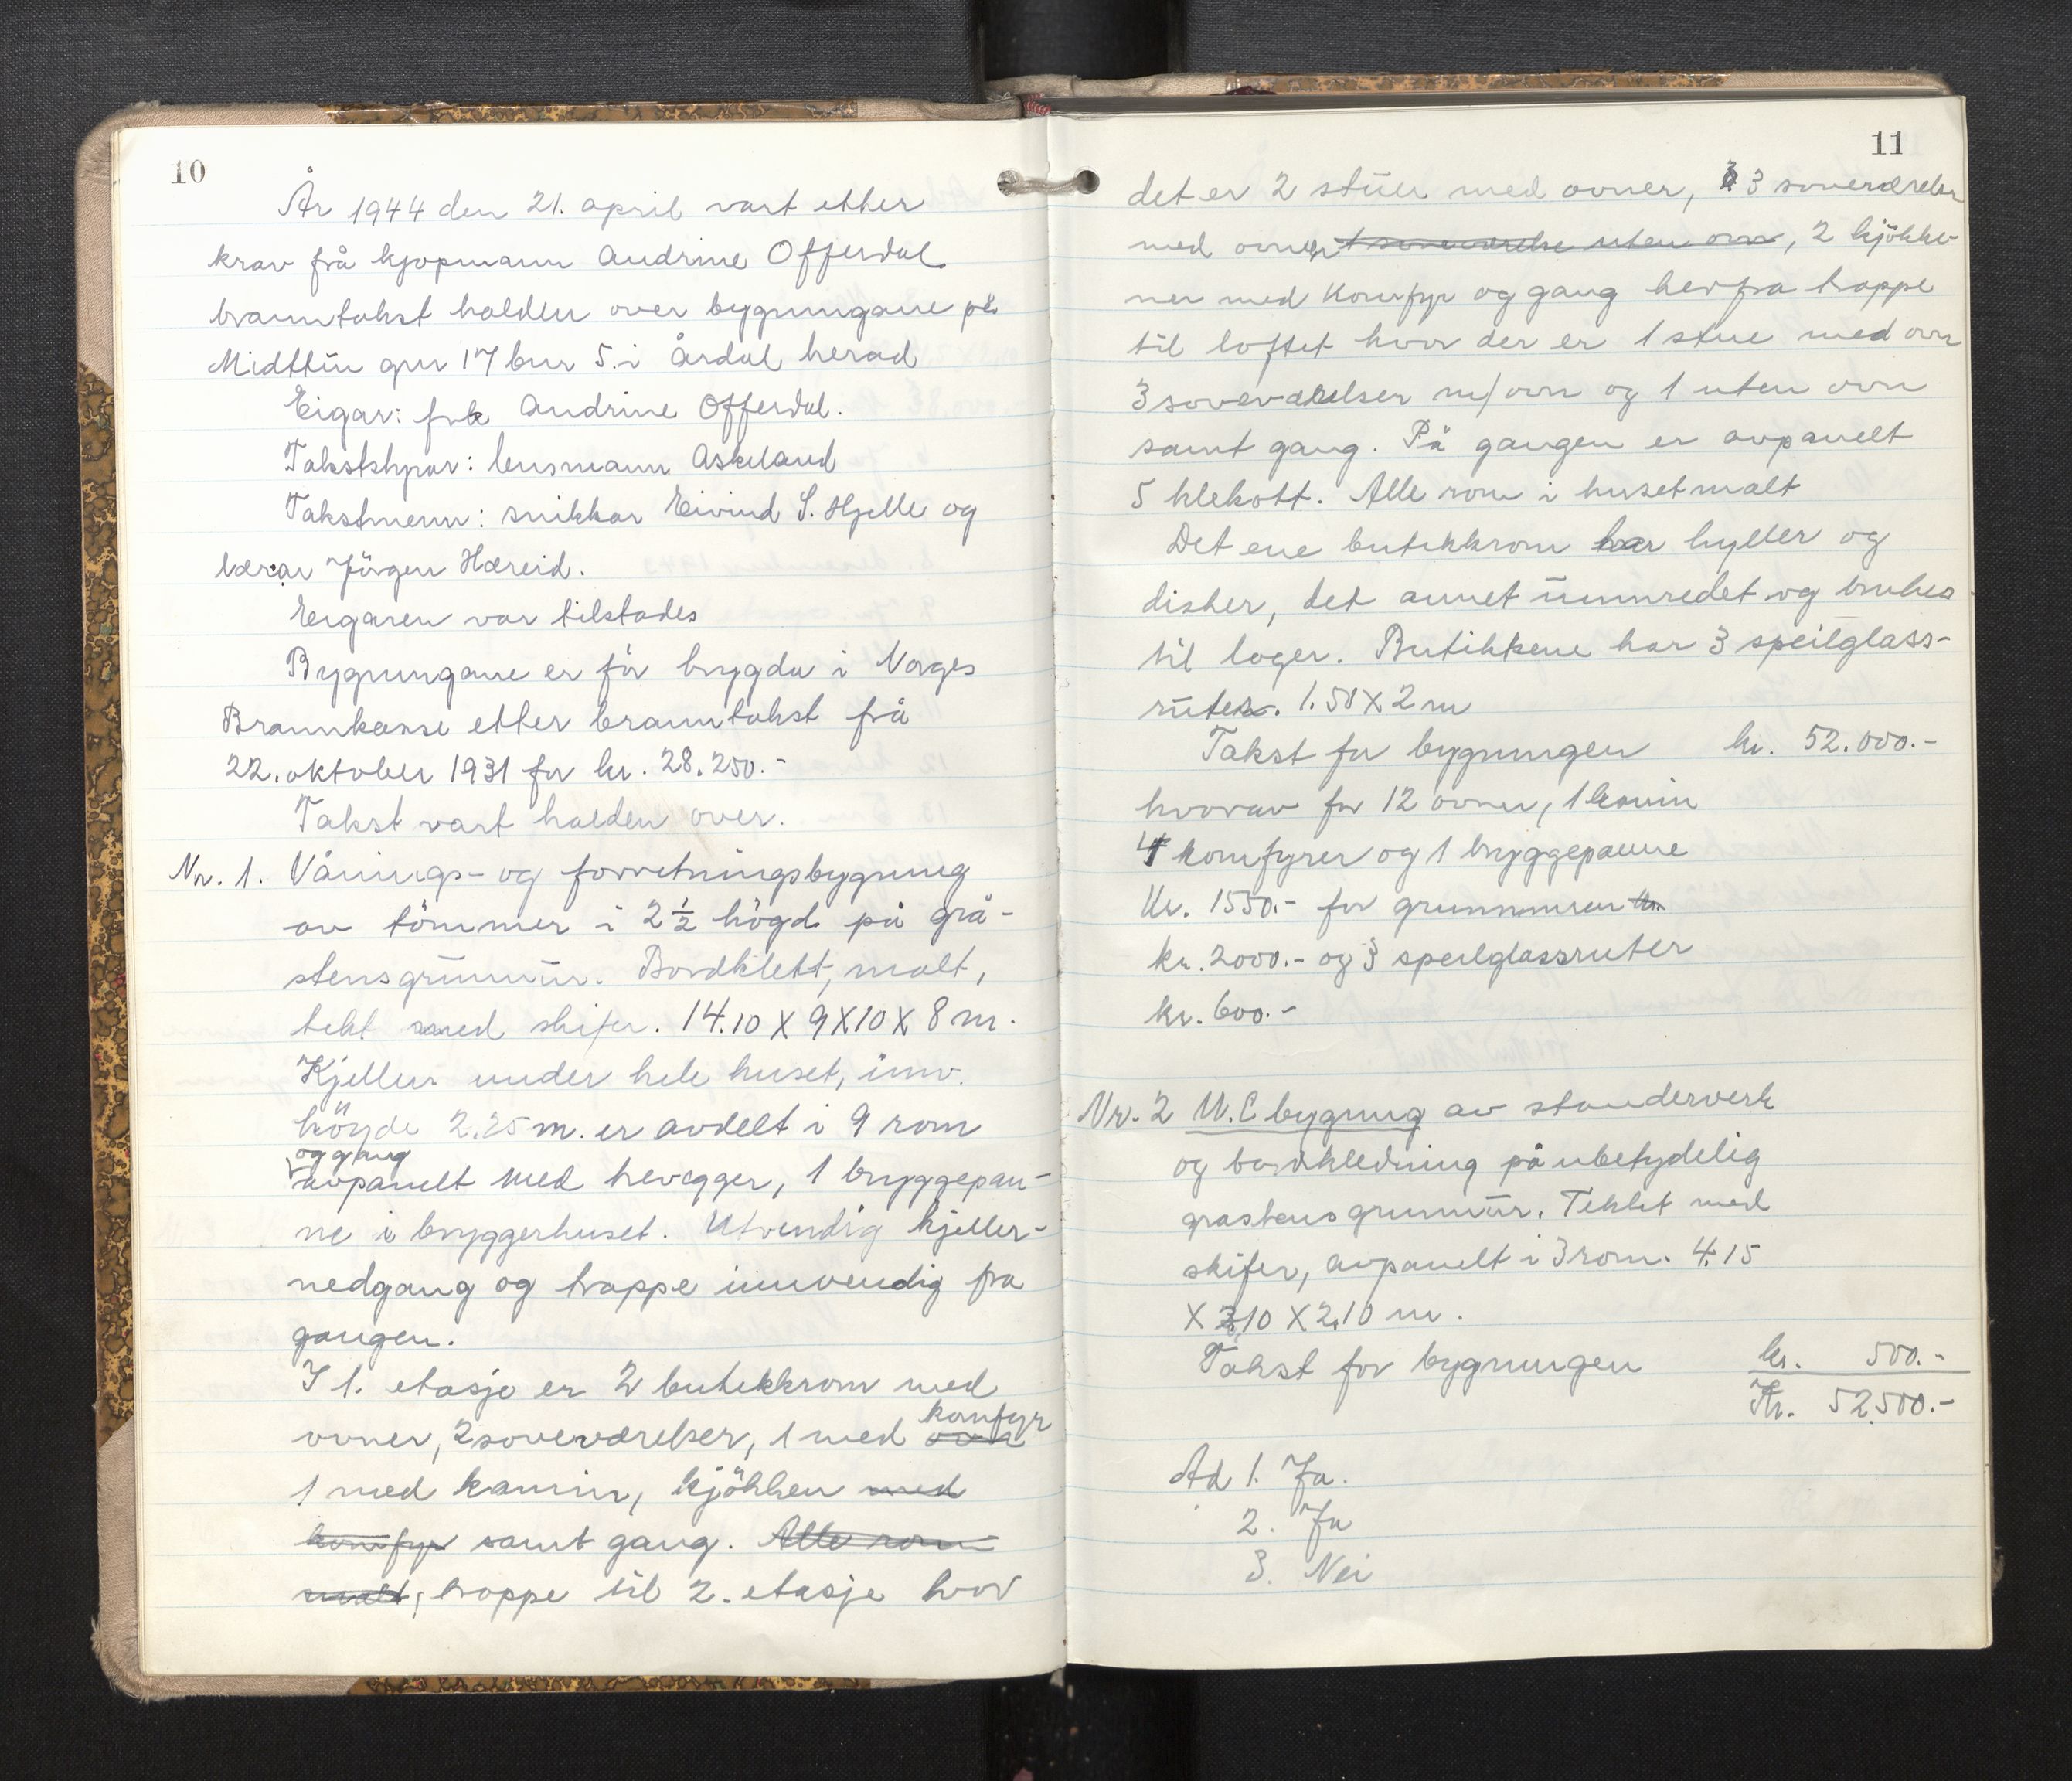 10
År 1944 den 21. april vart etter
krav frå kjøpmann Andrine Offerdal
branntakst halden over bygningane på
Midttün gnr 17 bnr 5. i Årdal herad
Eigar: frk Andrine Offerdal.
Takststyrar: lensmann Askeland
Takstmenn: snikkar Eivind S. Hjelle og
lærar Jörgen Hæreid.
Eigaren var tilstades
Bygningane er för trygda i Norges
Brannkasse etter branntakst frå
22. oktober 1931 for kr. 28.250.-
Takst vart halden over.
Nr. 1. Vånings- og forretningsbygning
av tömmer i 2½ högd på grå-
stensgrünmür. Bordklett, malt,
tekt med skifer. 14.10 X 9X10 X 8 m.
Kjeller under hele huset, innv.
höyde 2.25 m. er avdelt i 9 rom
og gang
avpanelt med trevegger, 1 bryggepan-
ne i bryggerhuset. Utvendig kjeller-
nedgang og trappe innvendig fra
gangen.
I 1. etasje er 2 butikkrom med
komfyr
ovner, 2 soveværelser, 1 med ovn
1 med kamin, kjökken med
komfyr samt gang. Alle rom
malt, trappe til 2. etasje hvor
11
det er 2 stüer med ovner, 3 soverærelser
med ovner, 1 soveværelse uten ovn, 2 kjökke-
ner med komfyr og gang herfra trappe
til loftet hvor der er 1 stue med ovn
3 soveværelser m/ovn og 1 uten ovn
samt gang. På gangen er avpanelt
5 klekott. Alle rom i huset malt
Det ene butikkrom har hyller og
disker, det annet üinnredet og brukes
til lager. Butikkene har 3 speilglass-
rüter. 1.50 X 2 m
Takst for bygningen kr. 52.000.-
hvorav for 12 ovner, 1 kamin
4 komfyrer og 1 bryggepanne
Kr. 1550.- for grunnmuren kr.
kr. 2000.- og 3 speilglassruter
kr. 600.-
Nr. 2 W.C bygning av standerverk
og bordkledning på ubetydelig
grastensgrunmür. Tekket med
skifer, avpanelt i 3 rom. 4.15
X 3.10 X 2.10 m.
Takst for bygningen kr. 500.-
Kr. 52.500.-
Ad 1. Ja.
2. Ja
3. Nei